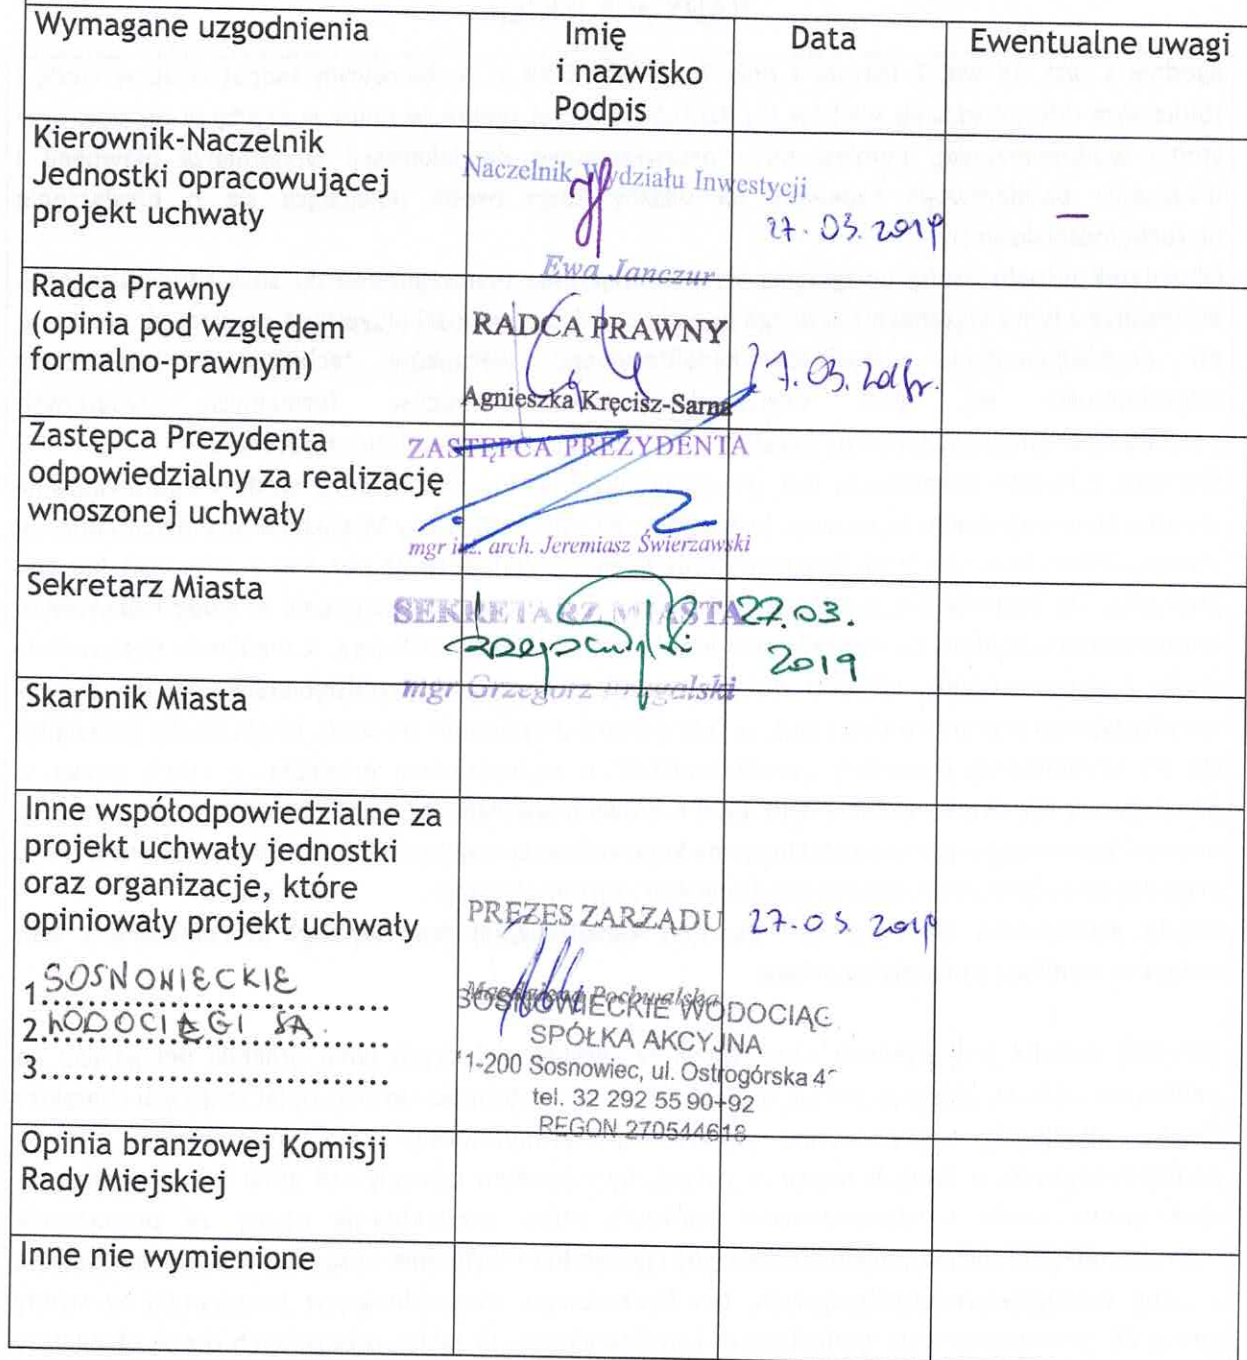 Wymagane uzgodnienia
Imię
i nazwisko
Podpis
Data
Ewentualne uwagi
Kierownik-Naczelnik
Jednostki opracowującej
projekt uchwały
Naczelnik Wydziału Inwestycji
Ewa Janczur
27.03.2019
—
Radca Prawny
(opinia pod względem
formalno-prawnym)
RADCA PRAWNY
Agnieszka Kręcisz-Sarna
27.03.2019r.
Zastępca Prezydenta
odpowiedzialny za realizację
wnoszonej uchwały
ZASTĘPCA PREZYDENTA
mgr inż. arch. Jeremiasz Świerzawski
Sekretarz Miasta
SEKRETARZ MIASTA
mgr Grzegorz
27.03.
2019
Skarbnik Miasta
Inne współodpowiedzialne za
projekt uchwały jednostki
oraz organizacje, które
opiniowały projekt uchwały
1. SOSNOWIECKIE
2. WODOCIĄGI SA
3.
PREZES ZARZĄDU
27.03.2019
SOSNOWIECKIE WODOCIĄG
SPÓŁKA AKCYJNA
1-200 Sosnowiec, ul. Ostrogórska 4
tel. 32 292 55 90÷92
REGON 270544618
Opinia branżowej Komisji
Rady Miejskiej
Inne nie wymienione